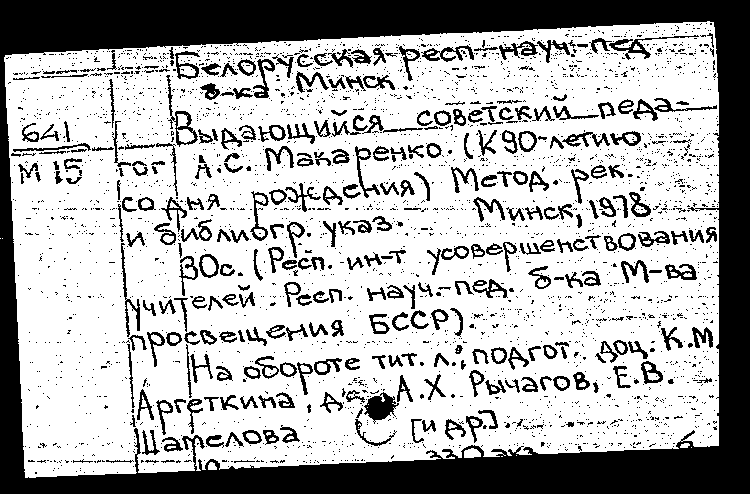 Белорусская респ. науч.-пед.
б-ка. Минск.
641 Выдающийся советский педа-
М 15 гог А.С. Макаренко. (К 90-летию
со дня рождения) Метод. рек.
и библиогр. указ. Минск, 1978
30с. (Респ. ин-т усовершенствования
учителей. Респ. науч.-пед. б-ка М-ва
просвещения БССР).
На обороте тит. л.: подгот. доц. К.М.
Аргеткина, А.Х. Рычагов, Е.В.
Шателова [и др.].
330 экз. б